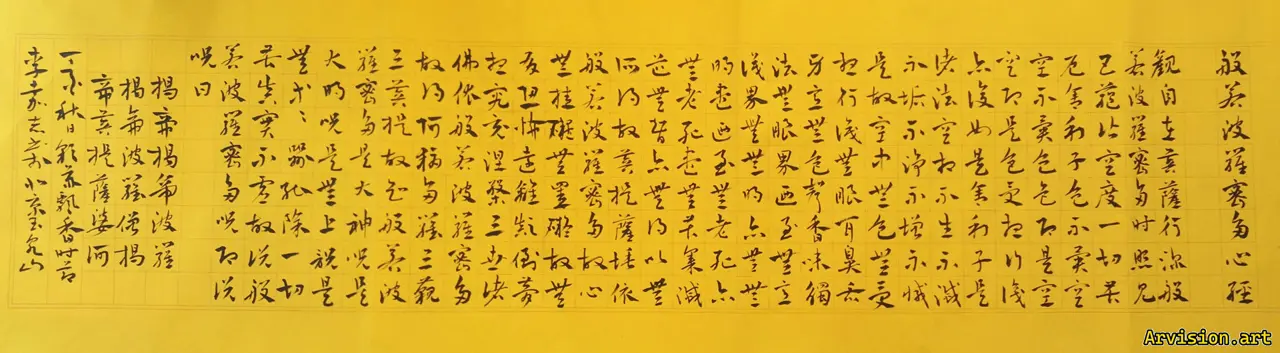 般若波羅蜜多心經
觀自在菩薩行深般
若波羅蜜多時照見
五蘊皆空度一切苦
厄舍利子色不異空
空不異色色即是空
空即是色受想行識
亦復如是舍利子是
諸法空相不生不滅
不垢不淨不增不減
是故空中無色無受
想行識無眼耳鼻舌
身意無色聲香味觸
法無眼界乃至無意
識界無無明亦無無
明盡乃至無老死亦
無老死盡無苦集滅
道無智亦無得以無
所得故菩提薩埵依
般若波羅蜜多故心
無罣礙無罣礙故無
有恐怖遠離顛倒夢
想究竟涅槃三世諸
佛依般若波羅蜜多
故得阿耨多羅三藐
三菩提故知般若波
羅蜜多是大神咒是
大明咒是無上咒是
無等々咒能除一切
苦真實不虛故說般
若波羅蜜多咒即說
咒曰
揭帝揭帝波羅
揭帝波羅僧揭
帝菩提薩婆訶
秋日飄香時節
李志京玉泉山
Arvision.art